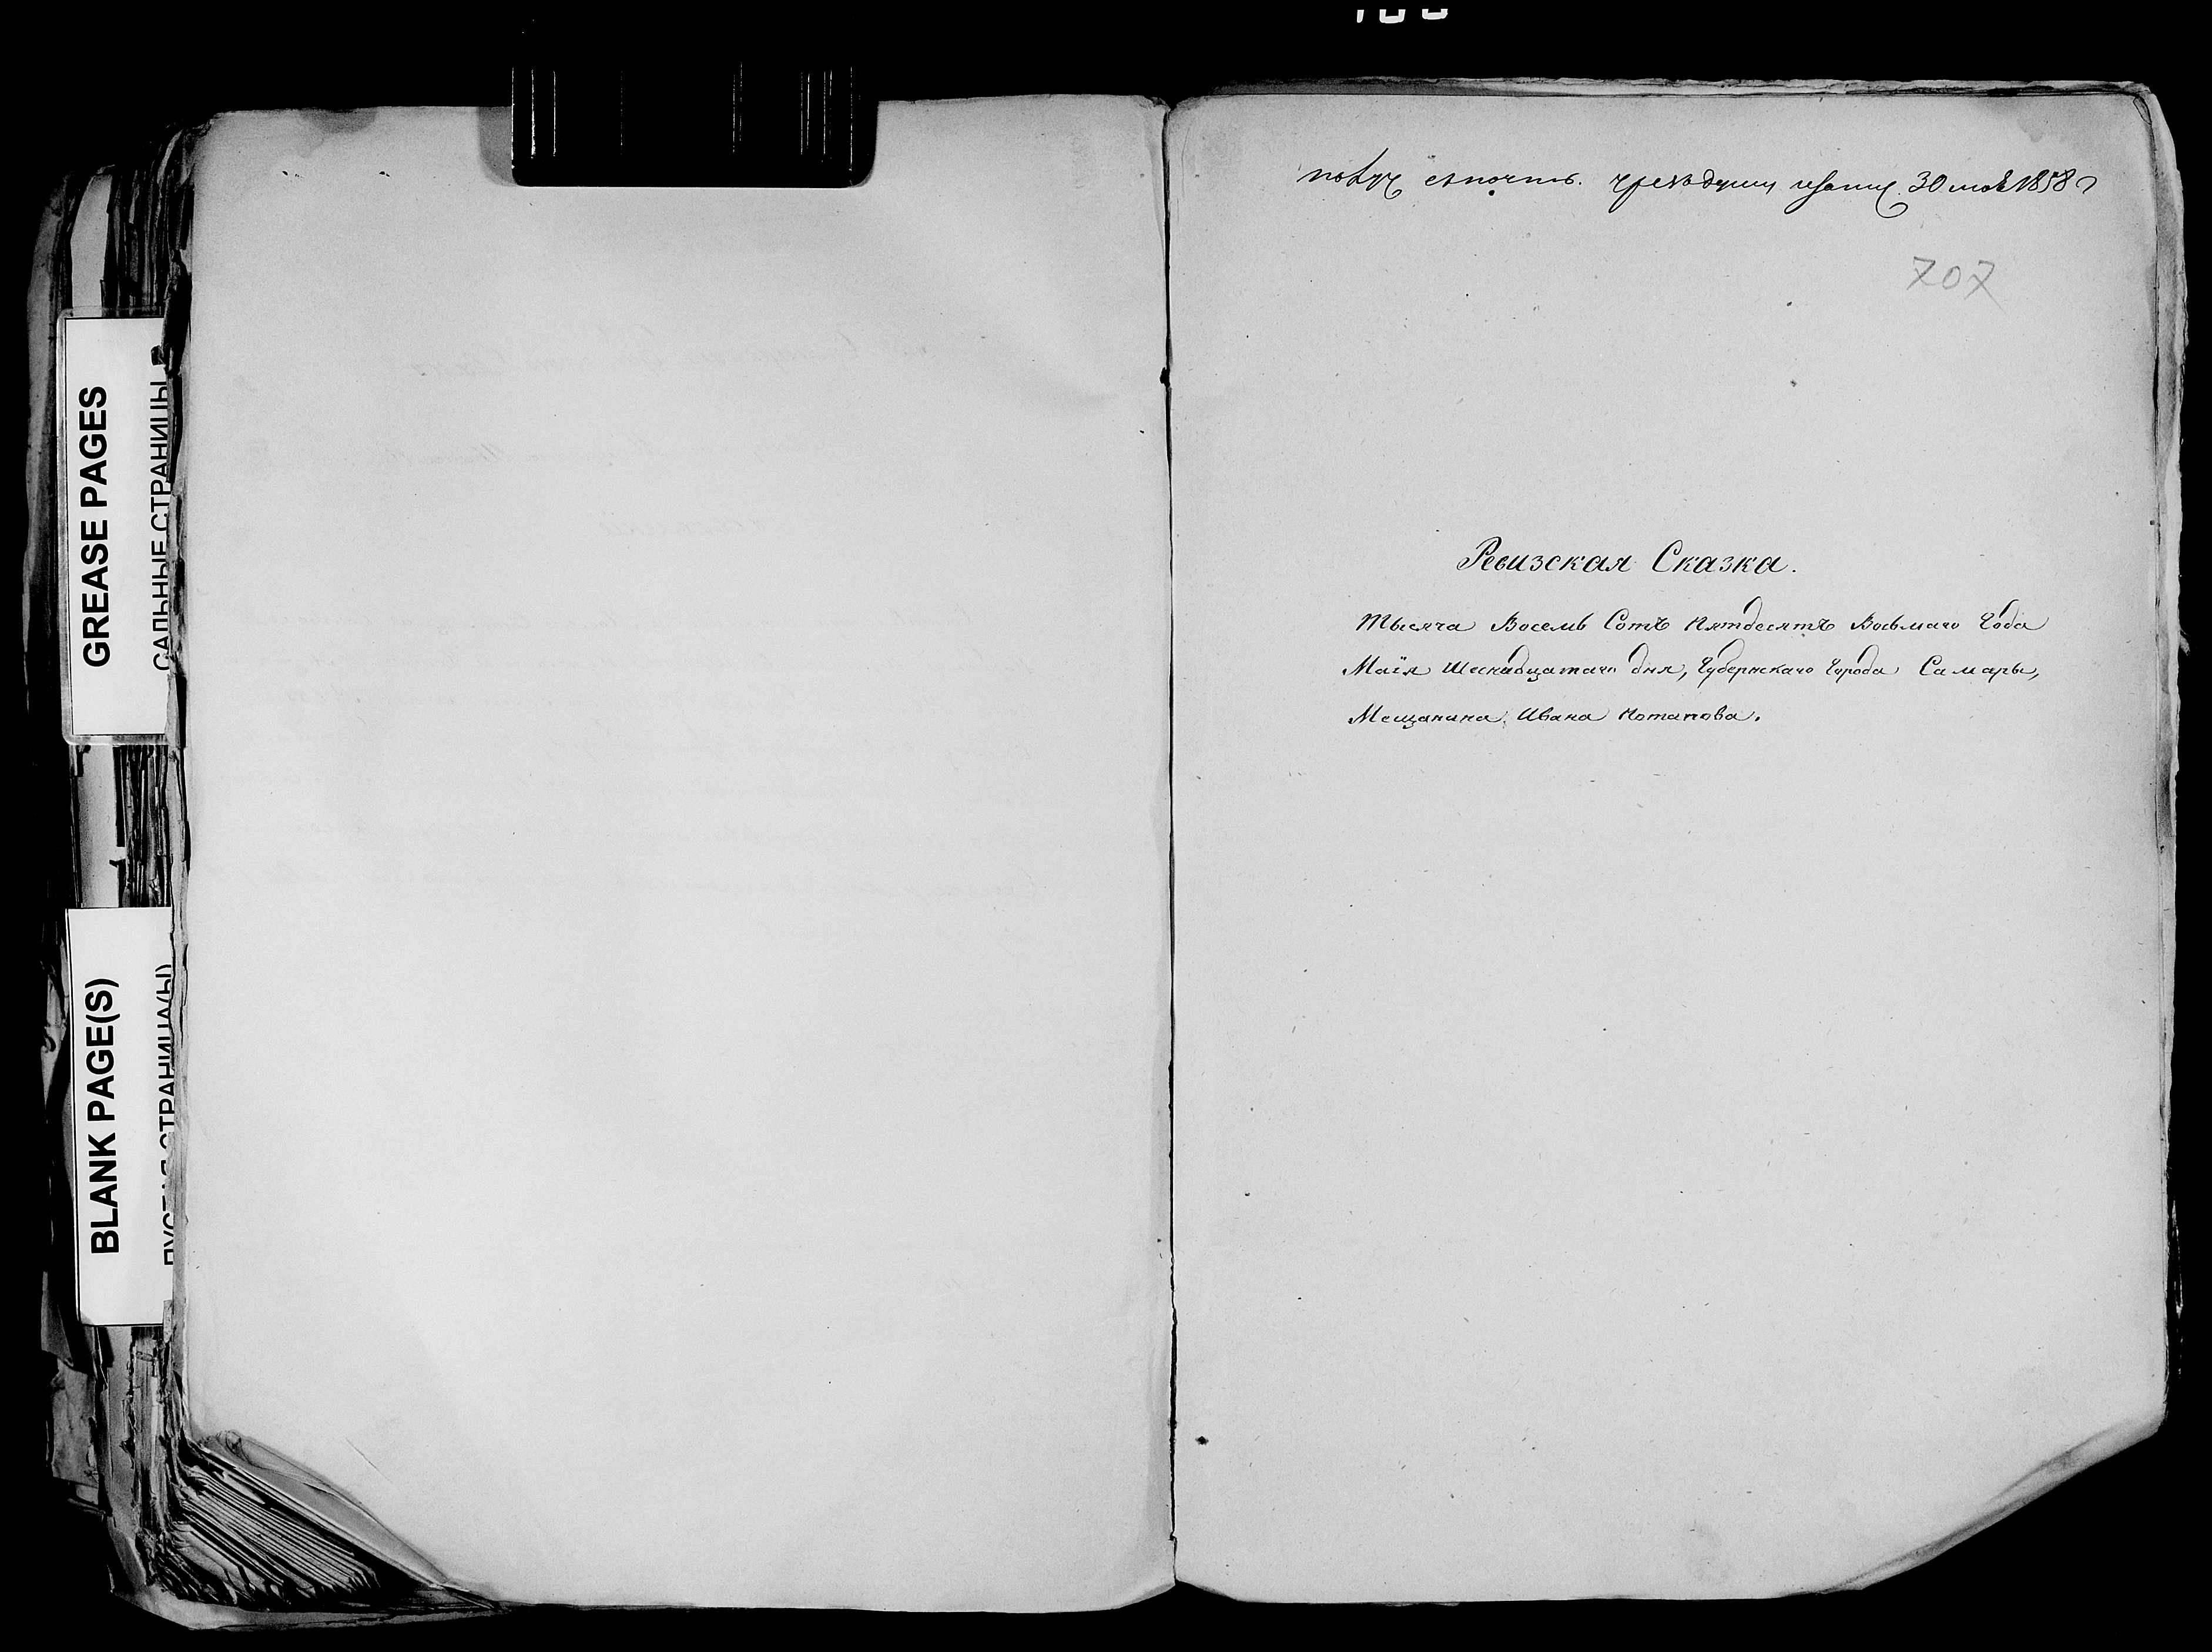 GREASE PAGES
САЛЬНЫЕ СТРАНИЦЫ
BLANK PAGE(S)
ПУСТАЯ СТРАНИЦА(Ы)
30 мая 1858 г
707
Ревизская Сказка.
Тысяча Восемь Сотъ Пятдесятъ Восьмаго Года
Маія Шеснадцатаго дня, Губернскаго Города Самары,
Мещанина Ивана Потапова.